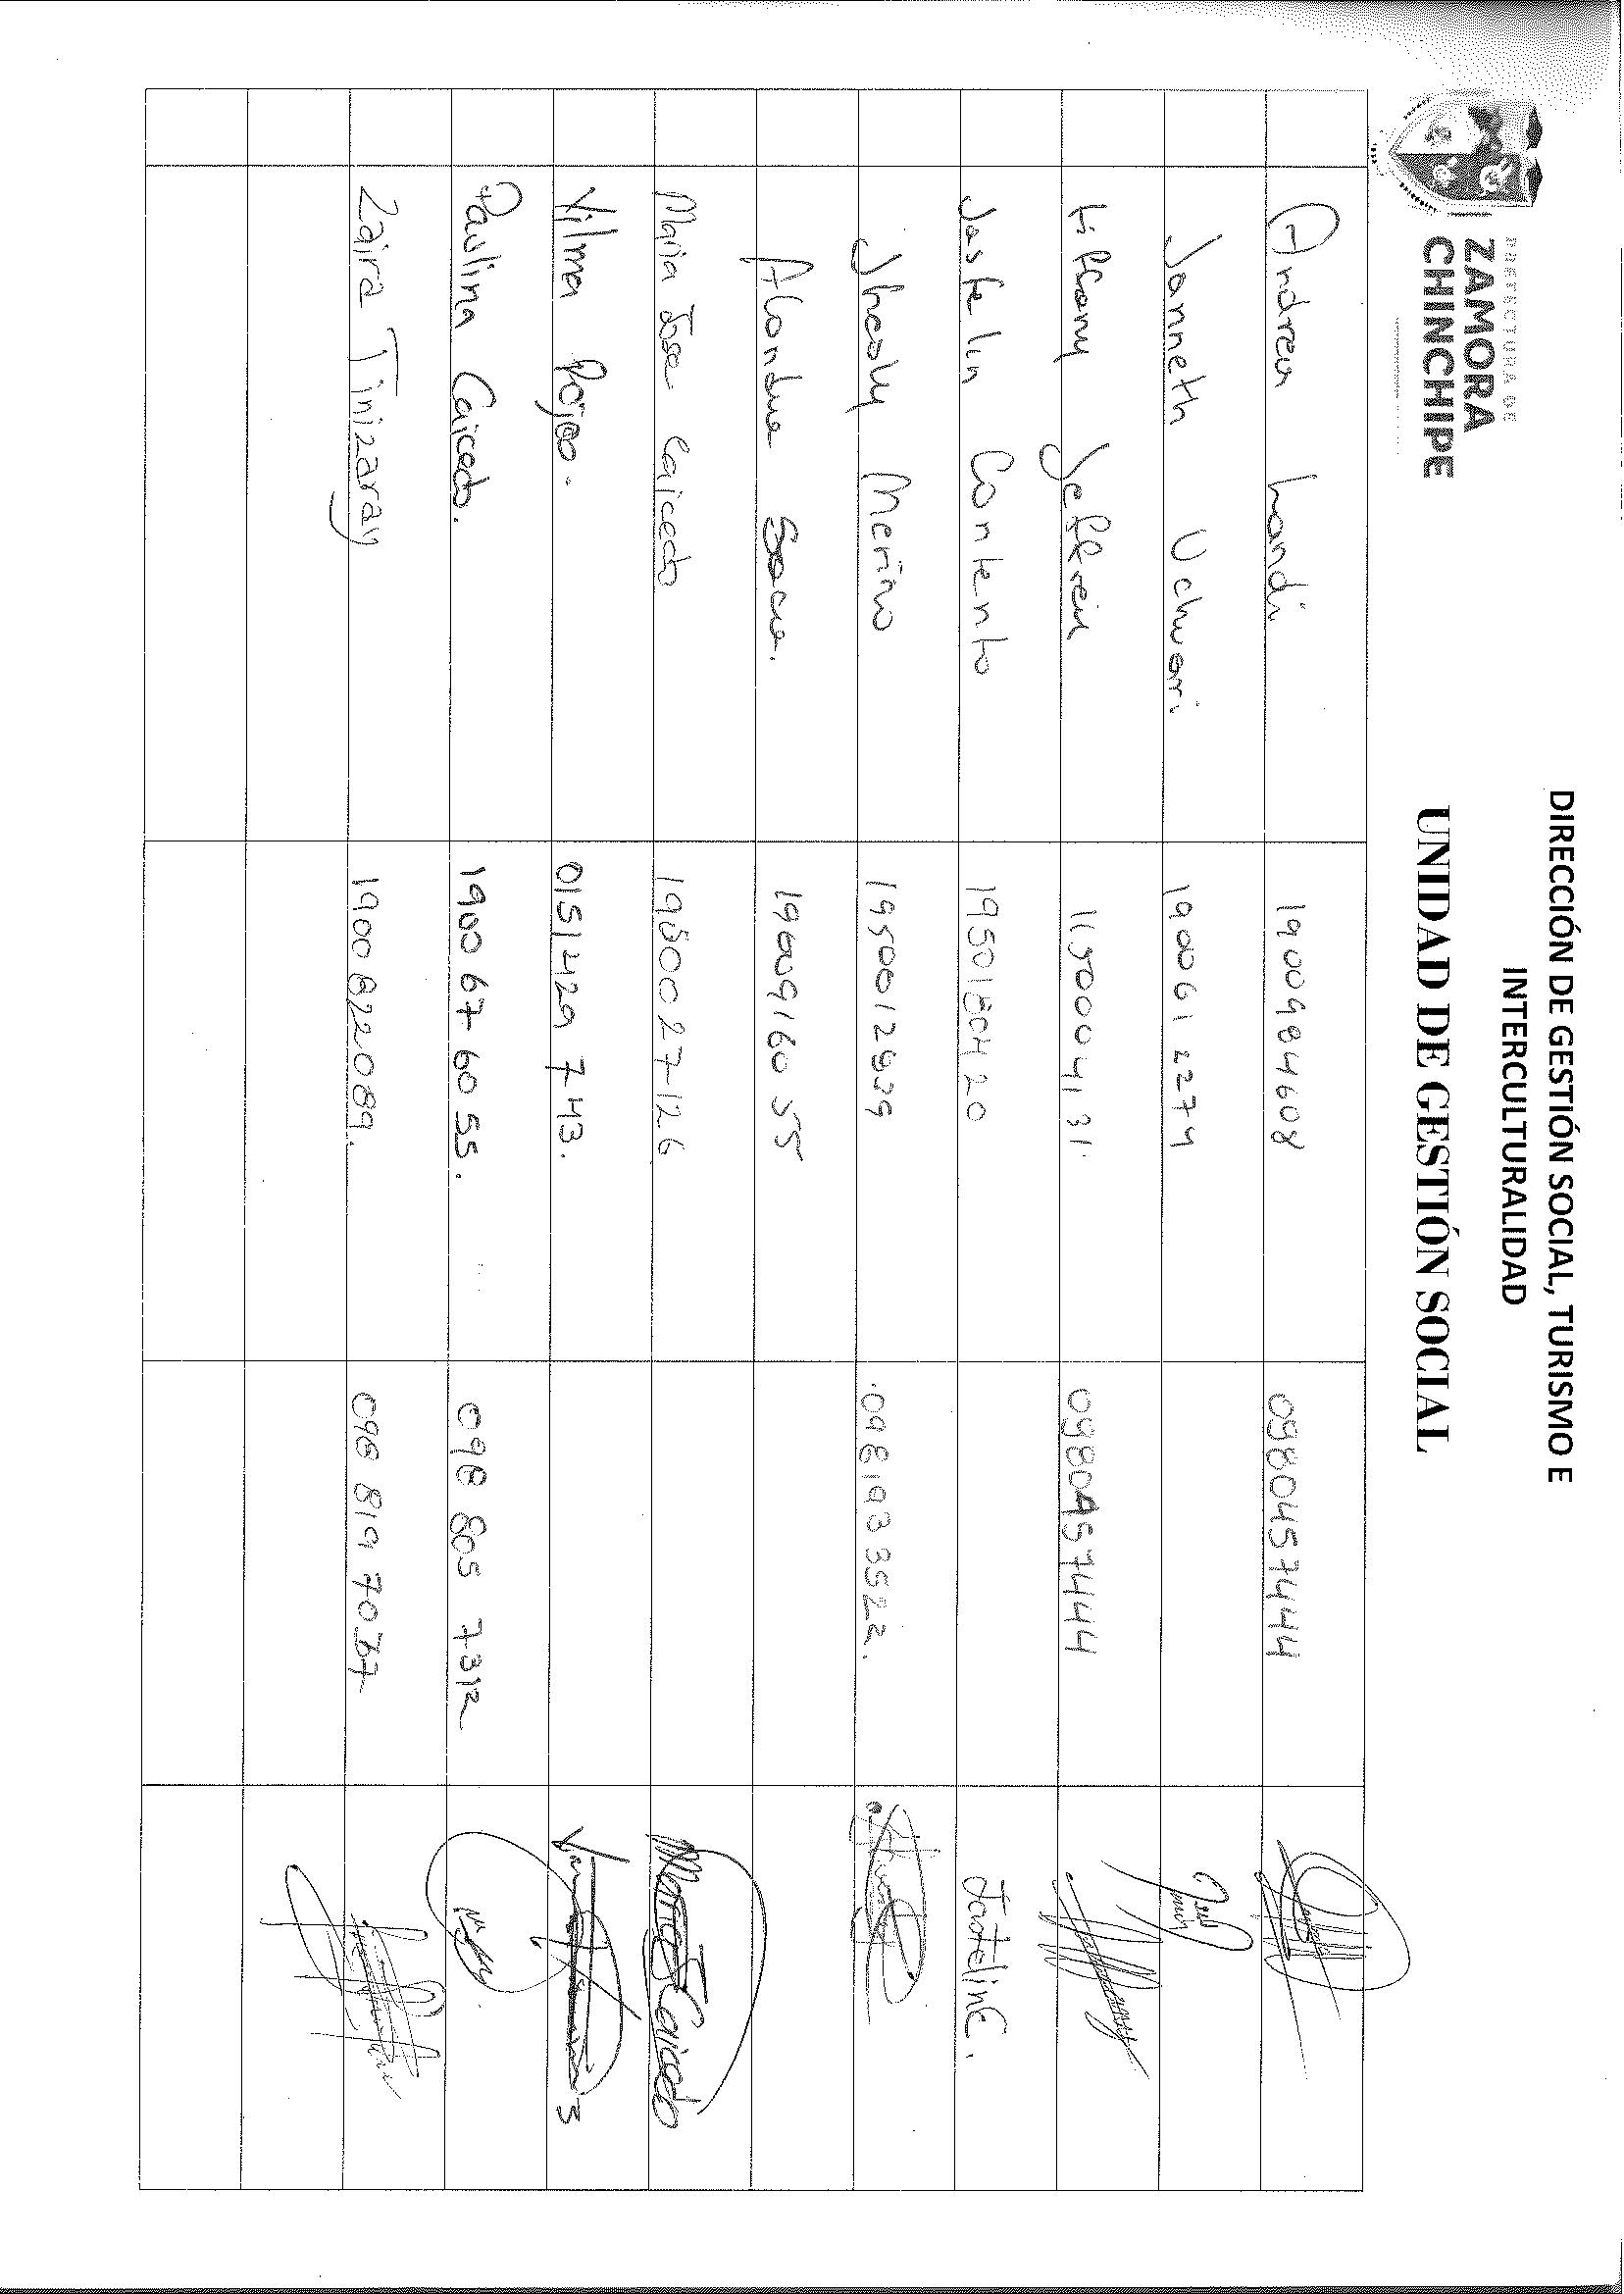 PREFECTURA DE
ZAMORA
CHINCHIPE
DIRECCIÓN DE GESTIÓN SOCIAL, TURISMO E
INTERCULTURALIDAD
UNIDAD DE GESTIÓN SOCIAL
Andrea Landi 1900984608 0980457444
Janneth Uchuari 1900612274
Tiffany Jeffrein 1150004131 0980457444
Jostelin Contento 1950180420 Jostelin C.
Jheoly Merino 1950012839 0981933522.
Alondra Saca. 1900916055
Maria Jose Caicedo 1980027126 Maria J Caicedo
Vilma Rojas. 0151429743.
Paulina Caicedo. 1900 67 60 55. 098 805 7312
Zaira Tinizaray 1900822089. 098 819 7067